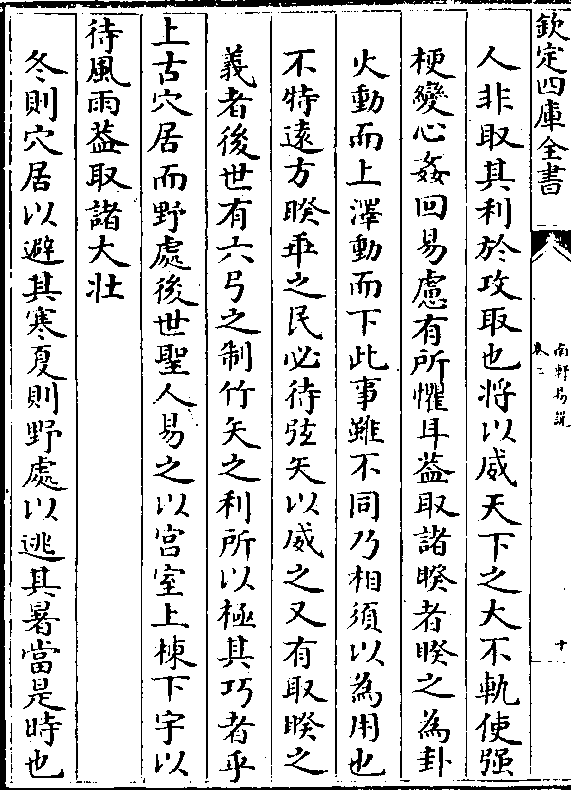 欽定四庫全書
南軒易説
卷二
十
人非取其利於攻取也將以威天下之大不軌使强
梗變心姦回易慮有所懼耳葢取諸睽者睽之為卦
火動而上澤動而下此事雖不同乃相須以為用也
不特遠方睽乖之民必待弦矢以威之又有取睽之
義者後世有六弓之制竹矢之利所以極其巧者乎
上古穴居而野處後世聖人易之以宫室上棟下宇以
待風雨葢取諸大壯
冬則穴居以避其寒夏則野處以逃其暑當是時也